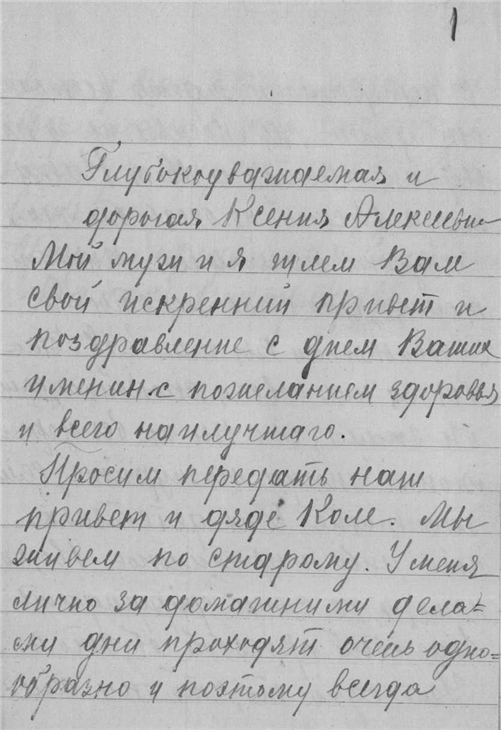 1
Глубокоуважаемая и
дорогая Ксения Алексеевна
Мой муж и я шлем Вам
свой искренний привет и
поздравление с днем Ваших
именин с пожеланием здоровья
и всего наилучшаго.
Просим передать наш
привет и дяде Коле. Мы
живем по старому. У меня
лично за домашними дела=
ми дни проходят очень одно=
образно и поэтому всегда